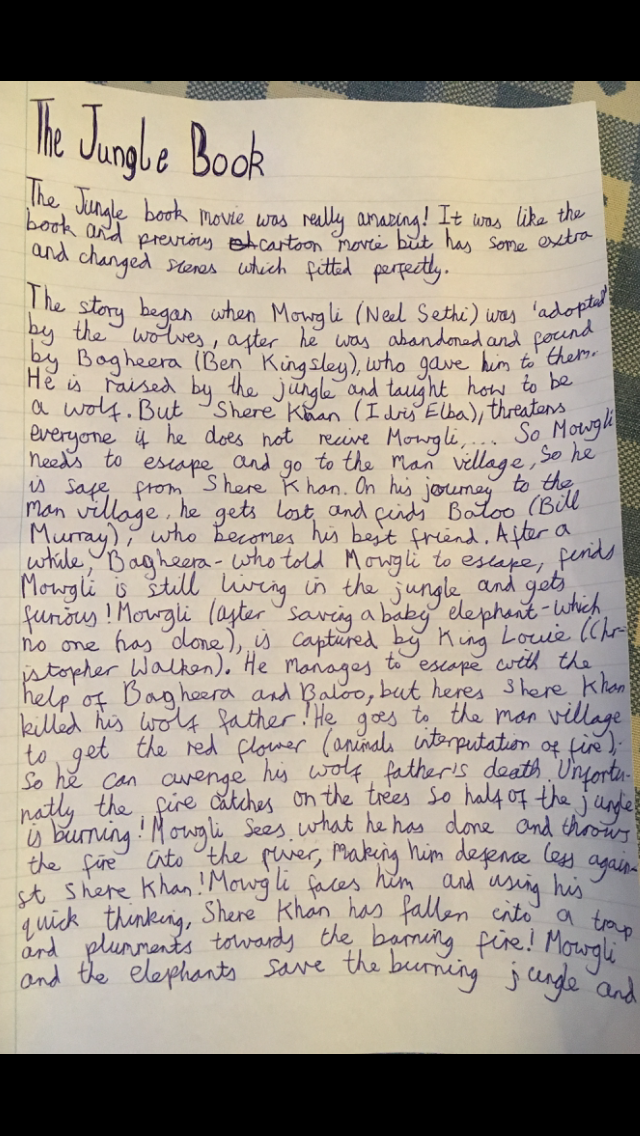 The Jungle Book
The Jungle book movie was really amazing! It was like the
book and previous cartoon movie but has some extra
and changed scenes which fitted perfectly.
The story began when Mowgli (Neel Sethi) was 'adopted'
by the wolves, after he was abandoned and found
by Bagheera (Ben Kingsley), who gave him to them.
He is raised by the jungle and taught how to be
a wolf. But Shere Khan (Idris Elba), threatens
everyone if he does not recive Mowgli,... So Mowgli
needs to escape and go to the man village, so he
is safe from Shere Khan. On his journey to the
man village, he gets lost and finds Baloo (Bill
Murray), who becomes his best friend. After a
while, Bagheera - who told Mowgli to escape, finds
Mowgli is still living in the jungle and gets
furious! Mowgli (after saving a baby elephant - which
no one has done), is captured by King Louie (Chr-
istopher Walken). He manages to escape with the
help of Bagheera and Baloo, but heres Shere Khan
killed his wolf father! He goes to the man village
to get the red flower (animals interputation of fire),
so he can avenge his wolf father's death. Unfortu-
natly the fire catches on the trees so half of the jungle
is burning! Mowgli sees what he has done and throws
the fire into the river, making him defence less again-
st Shere Khan! Mowgli faces him and using his
quick thinking, Shere Khan has fallen into a trap
and plumments towards the barning fire! Mowgli
and the elephants save the burning jungle and